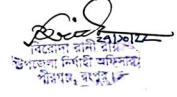 ২৭/১০/২২
বিরোদা রানী রায়
উপজেলা নির্বাহী অফিসার
পীরগঞ্জ, রংপুর।